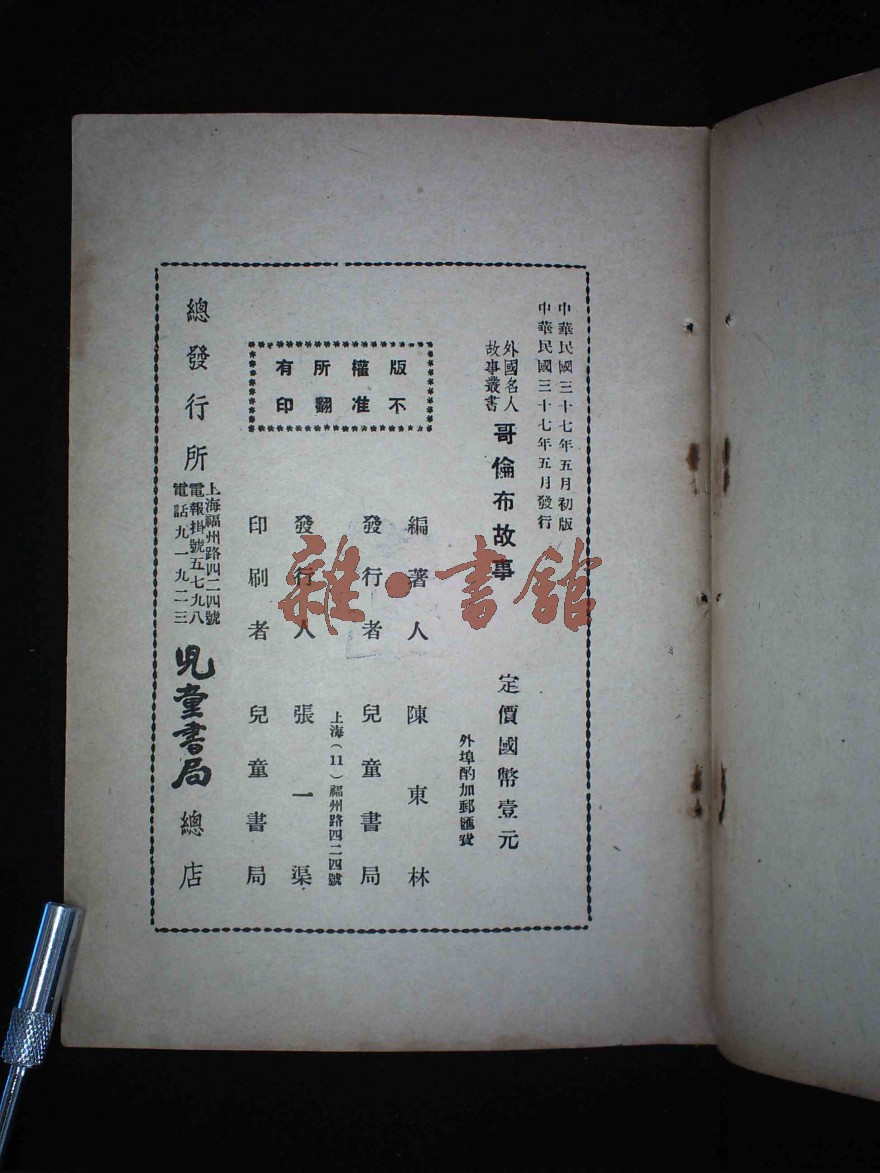 中華民國三十七年五月初版
中華民國三十七年五月發行
外國名人
故事叢書
哥倫布故事
定價國幣壹元
外埠酌加郵匯費
編著人 陳東林
發行者 兒童書局
上海(11)福州路四二四號
發行人 張一渠
印刷者 兒童書局
版權所有
不准翻印
總發行所
上海福州路四二四號
電報掛號五七九八
電話九一九二三
兒童書局總店
雜·書館